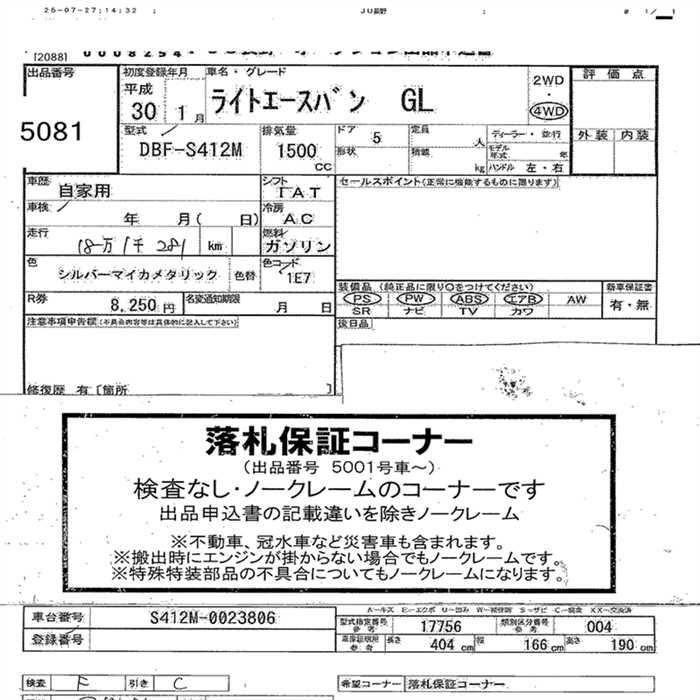 25-07-27;14:32 ; JU長野 ; # 1/ 1
[2088]
出品番号 初度登録年月 車名・グレード 評価点
5081 平成 30 1月 ライトエースバン GL 2WD・4WD
型式 排気量 ドア 定員 ディーラー・並行 外装 内装
DBF-S412M 1500 CC 5 人
形状 積載 kg モデル年式 年 ハンドル 左・右
車歴 自家用 シフト IAT セールスポイント(正常に機能するものに限ります)
車検 年 月( 日) 冷房 AC
走行 18万1千281 km 燃料 ガソリン
色 シルバーマイカメタリック 色替 色コード 1E7
装備品 (純正品に限り○をつけてください) 新車保証書
PS PW ABS エアB AW 有・無
SR ナビ TV カワ
R券 8,250円 名変通知期限 月 日
後日品
注意事項申告欄(不具合内容等は具体的に記入して下さい)
修復歴 有[箇所 ]
落札保証コーナー
(出品番号 5001号車~)
検査なし・ノークレームのコーナーです
出品申込書の記載違いを除きノークレーム
※不動車、冠水車など災害車も含まれます。
※搬出時にエンジンが掛からない場合でもノークレームです。
※特殊特装部品の不具合についてもノークレームになります。
車台番号 S412M-0023806 型式指定番号 参考 17756 類別区分番号 参考 004
登録番号 車検証現用 参考 長さ 404 cm 幅 166 cm 高さ 190 cm
検査 F 引き C 希望コーナー 落札保証コーナー